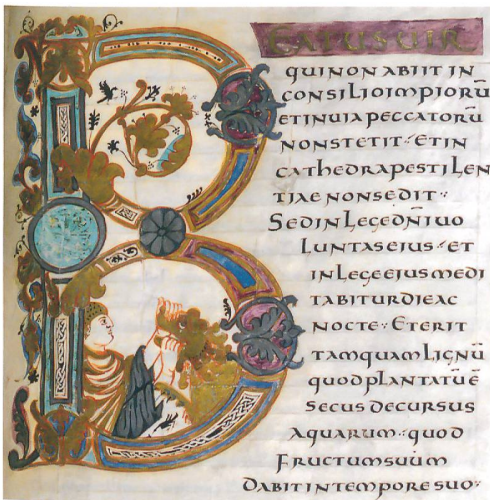 BEATUSUIR
QUI NON ABIIT IN
CONSILIO IMPIORŪ
ET IN UIA PECCATORŪ
NON STETIT · ET IN
CATHEDRA PESTILEN
TIAE NON SEDIT ·
SED IN LEGE DN̄I UO
LUNTAS EIUS · ET
IN LEGE EIUS MEDI
TABITUR DIE AC
NOCTE · ET ERIT
TAMQUAM LIGNŪ
QUOD PLANTATŪ Ē
SECUS DECURSUS
AQUARUM · QUOD
FRUCTUM SUUM
DABIT IN TEMPORE SUO ·